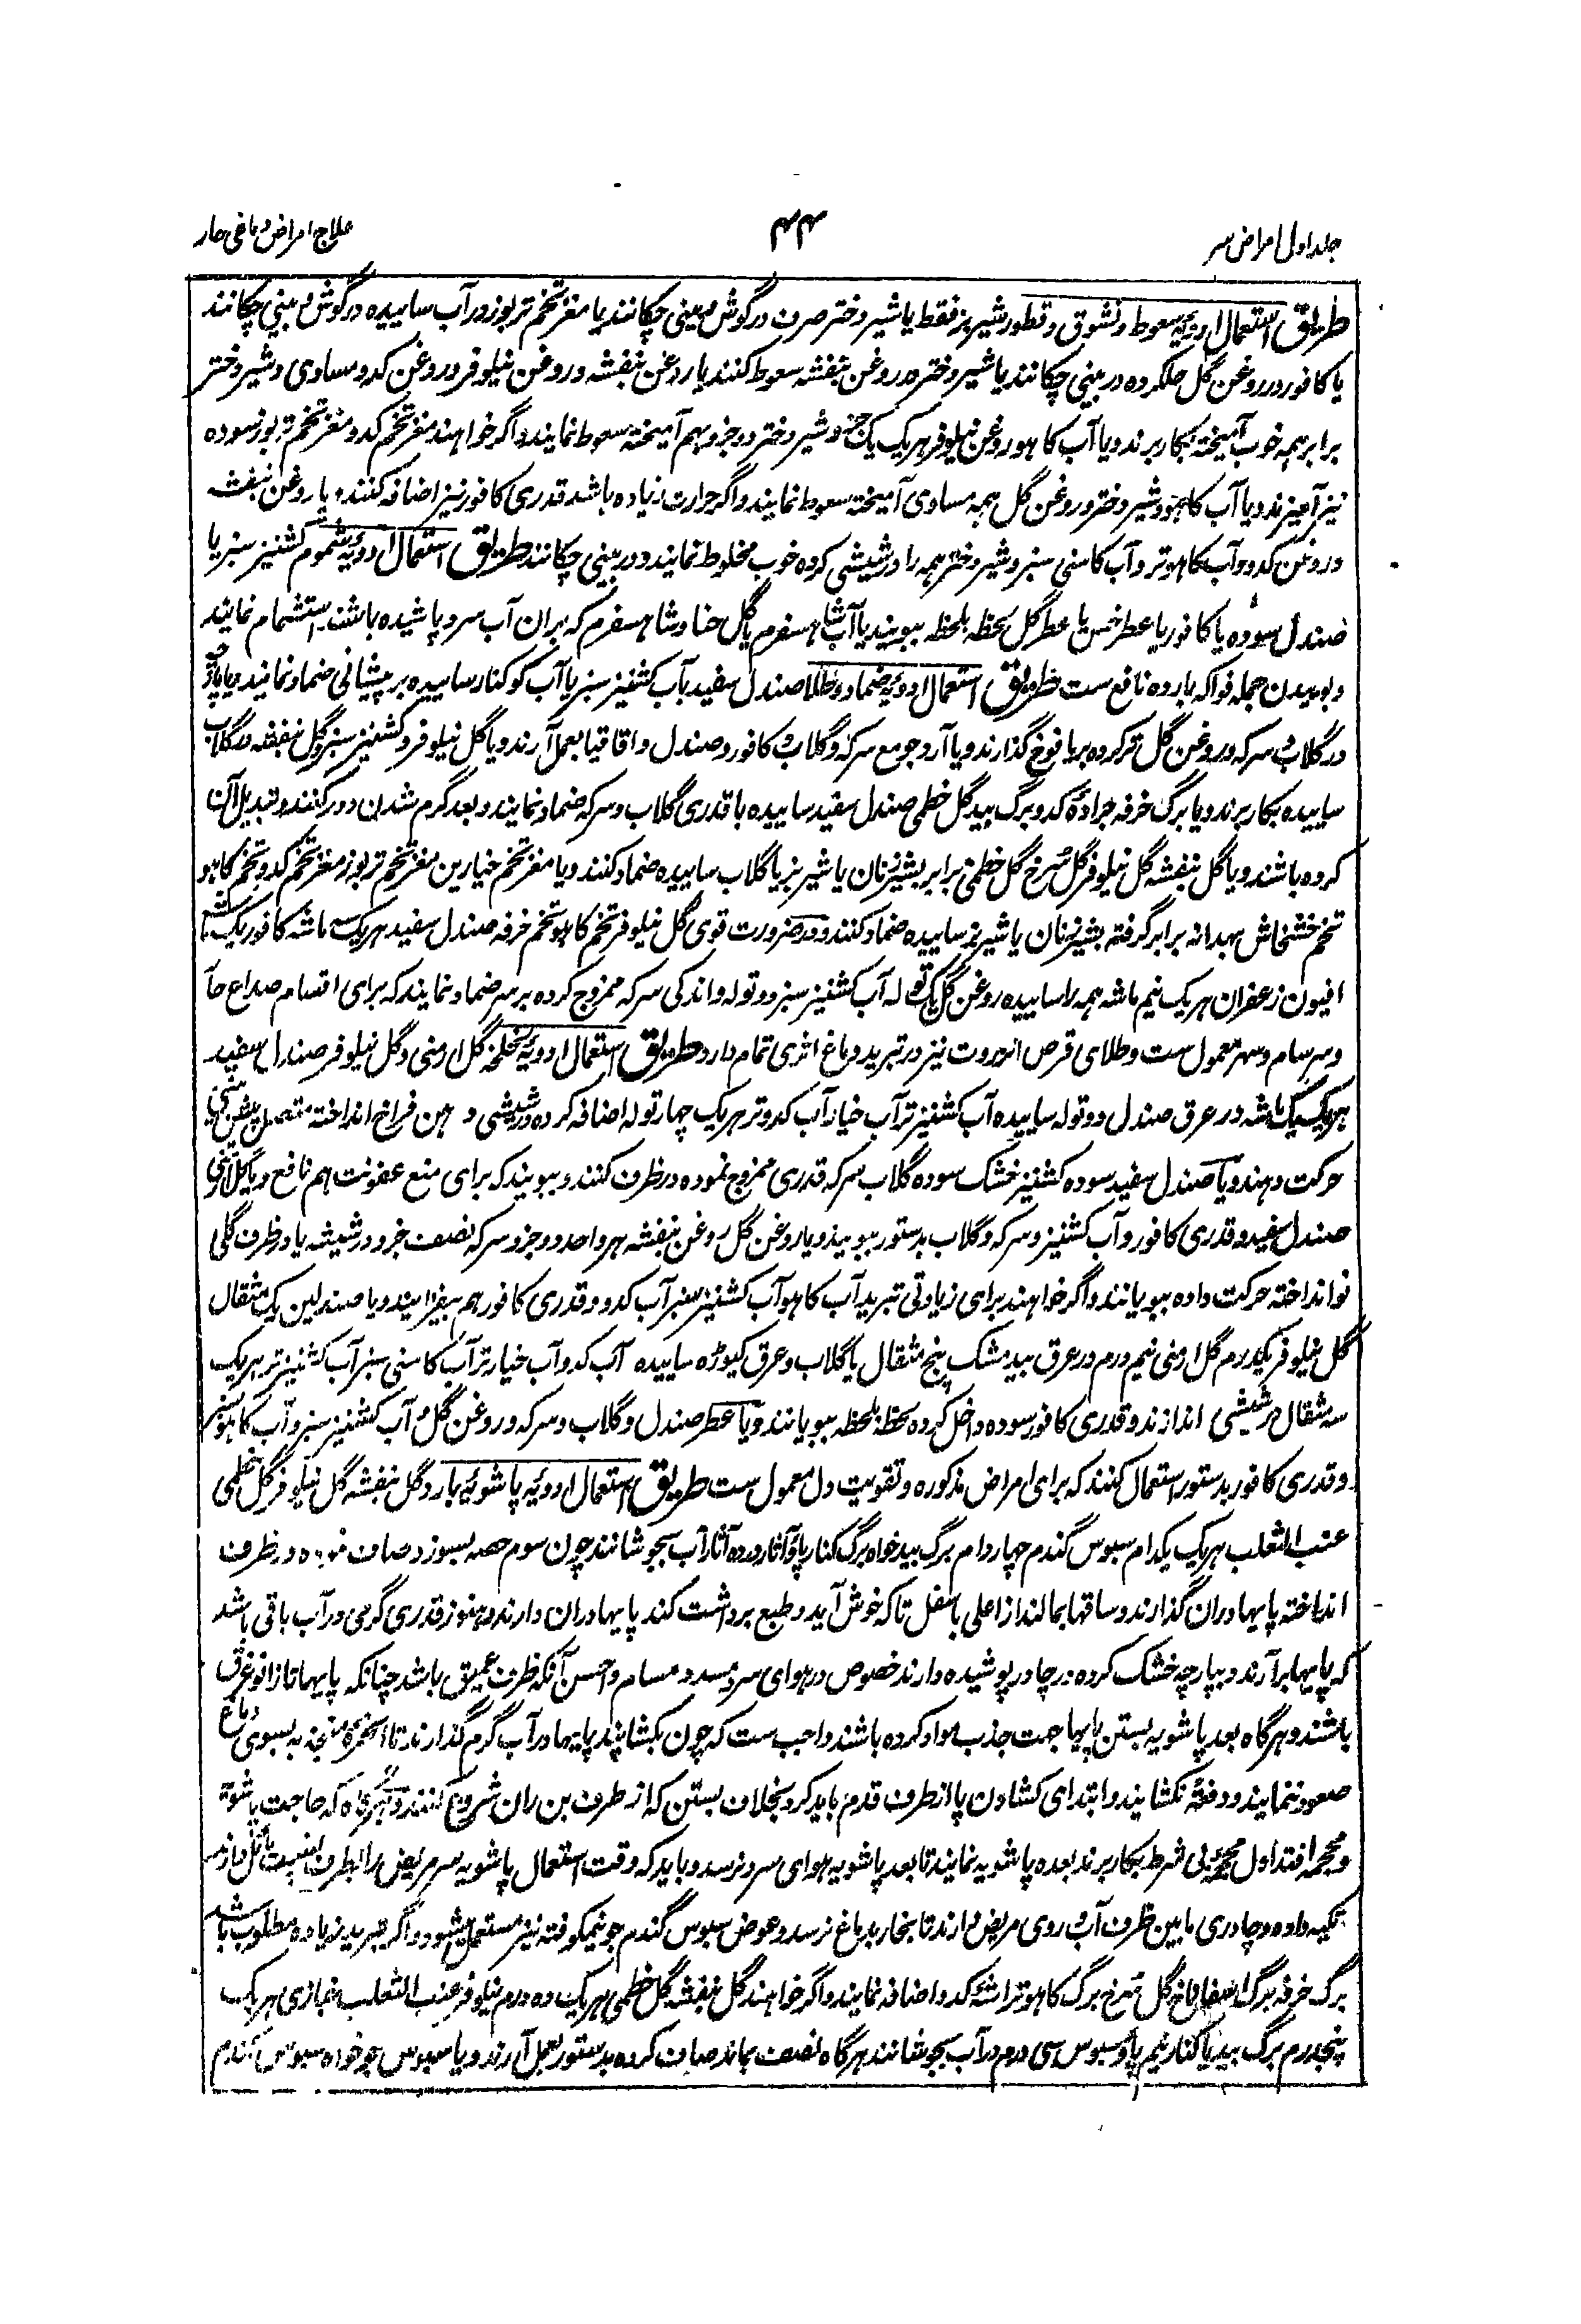 جلد اول امراض سر
۴۴
علاج امراض دماغی حار
طریق استعمال ادویۀ سعوط و نشوق و قطور شیر بز فقط یا شیر دختر صرف در گوش و بینی چکانند یا مغز تخم تربوز در آب ساییده در گوش و بینی چکانند
یا کافور در روغن گل حل کرده در بینی چکانند یا شیر دختر در روغن بنفشه سعوط کنند یا روغن بنفشه و روغن نیلوفر و روغن کدو مساوی و شیر دختر
برابر همه خوب آمیخته بکار برند و یا آب کاهو روغن نیلوفر هریک یک جزو شیر دختر دو جزو بهم آمیخته سعوط نمایند و اگر خواهند مغز تخم کدو مغز تخم تربوز سوده
نیز آمیزند و یا آب کاهو و شیر دختر و روغن گل همه مساوی آمیخته سعوط نمایند و اگر حرارت زیاده باشد قدری کافور نیز اضافه کنند و یا روغن بنفشه
و روغن کدو و آب کاهو تر و آب کاسنی سبز و شیر دختر همه را در شیشی کرده خوب مخلوط نمایند و در بینی چکانند طریق استعمال ادویۀ شموم کشنیز سبز یا
صندل سوده یا کافور یا عطر خس یا عطر گل لحظه بلحظه ببویند یا آب شاهسفرم یا گل حنا و شاهسفرم که بران آب سرد پاشیده باشند استشمام نمایند
و بوییدن جمله فواکه بارده نافع ست طریق استعمال ادویۀ ضماد و طلا صندل سفید بآب کشنیز سبز یا آب کوکنار ساییده بر پیشانی ضماد نمایند و یا پارچه
در گلاب و سرکه و روغن گل تر کرده بر یافوخ گذارند و یا آرد جو مع سرکه و گلاب کافور و صندل و اقاقیا بعمل آرند و یا گل نیلوفر و کشنیز سبز و گل بنفشه در گلاب
ساییده بکار برند و یا برگ خرفه جرادۀ کدو برگ بید گل خطمی صندل سفید ساییده با قدری گلاب و سرکه ضماد نمایند و بعد گرم شدن دور کنند و تبدیل آن
کرده باشند و یا گل بنفشه گل نیلوفر گل سرخ گل خطمی برابر بشیر زنان یا شیر بز یا گلاب ساییده ضماد کنند و یا مغز تخم خیارین مغز تخم تربوز مغز تخم کدو تخم کاهو
تخم خشخاش بهدانه برابر گرفته بشیر زنان یا شیر بز ساییده ضماد کنند و در ضرورت قوی گل نیلوفر تخم کاهو تخم خرفه صندل سفید هریک سه ماشه کافور یک ماشه
افیون زعفران هریک نیم ماشه همه را ساییده روغن گل یک توله آب کشنیز سبز دو توله و اندکی سرکه ممزوج کرده بر سر ضماد نمایند که برای اقسام صداع حار
و سرسام و سهر معمول ست و طلای قرص انزروت نیز در تبرید دماغ اثری تمام دارد طریق استعمال ادویۀ لخلخه گل ارمنی و گل نیلوفر صندل سفید
هریک یک ماشه در عرق صندل دو توله ساییده آب کشنیز تر آب خیار آب کدو تر هریک چهار توله اضافه کرده در شیشی دهن فراخ انداخته متصل بینی
حرکت دهند و یا صندل سفید سوده کشنیز خشک سوده گلاب سرکه قدری ممزوج نموده در ظرف کنند و ببویند که برای منع عفونت هم نافع و یا گل ارمنی
صندل سفید و قدری کافور و آب کشنیز و سرکه و گلاب بدستور ببویند و یا روغن گل روغن بنفشه هر واحد دو جزو سرکه نصف جزو در شیشه یا در ظرف گلی
نو انداخته حرکت داده ببویانند و اگر خواهند برای زیادتی تبرید آب کاهو آب کشنیز سبز آب کدو و قدری کافور هم بیفزایند و یا صندلین یک مثقال
گل نیلوفر یکدرم گل ارمنی نیم درم در عرق بید مشک پنج مثقال یا گلاب و عرق کیوڑه ساییده آب کدو آب خیار تر آب کاسنی سبز آب کشنیز تر هریک
سه مثقال در شیشی اندازند و قدری کافور سوده داخل کرده لحظه بلحظه ببویانند و یا عطر صندل و گلاب و سرکه و روغن گل و آب کشنیز سبز و آب کاهو سبز
و قدری کافور بدستور استعمال کنند که برای امراض مذکوره و تقویت دل معمول ست طریق استعمال ادویۀ پاشویه بارد گل بنفشه گل نیلوفر گل خطمی
عنب الثعلب هریک یکدام سبوس گندم چهار دام برگ بید خواه برگ کنار پاو آثار در ده آثار آب بجوشانند چون سوم حصه بسوزد صاف نموده در ظرف
انداخته پایها دران گذارند و ساقها بمالند از اعلی باسفل تا که خوش آید و طبع برداشت کند پایها دران دارند و هنوز قدری گرمی در آب باقی باشد
که پایها برآرند و بپارچه خشک کرده در چادر پوشیده دارند خصوص در هوای سرد مسدد مسام و احسن آنکه ظرف عمیق باشد چنانکه پایها تا زانو غرق
باشند و هرگاه بعد پاشویه بستن پایها جهت جذب مواد کرده باشند واجب ست که چون بکشایند پایها در آب گرم گذارند تا ابخره منجذبه بسوی دماغ
صعود ننمایند و دفعةً نکشایند و ابتدای کشادن پا از طرف قدم باید کرد بخلاف بستن که از طرف بن ران شروع کنند و هرگاه که حاجت پاشویه
و محجمه افتد اول محجمه بی شرط بکار برند بعده پاشویه نمایند تا بعد پاشویه هوای سرد نرسد و باید که وقت استعمال پاشویه سر مریض را بطرف
تکیه داده و چادری ما بین ظرف آب و روی مریض دارند تا بخار بدماغ نرسد و عوض سبوس گندم جو نیمکوفته نیز مستعمل میشود و اگر تبرید زیاده مطلوب باشد
برگ خرفه برگ اسفاناخ گل سرخ برگ کاهو تراشۀ کدو اضافه نمایند و اگر خواهند گل بنفشه گل خطمی هریک ده درم نیلوفر عنب الثعلب خبازی هریک
پنجدرم برگ بید یا کنار نیم پاو سبوس سی درم در آب بجوشانند هرگاه نصف بماند صاف کرده بدستور بعمل آرند و یا سبوس جو خواه سبوس گندم